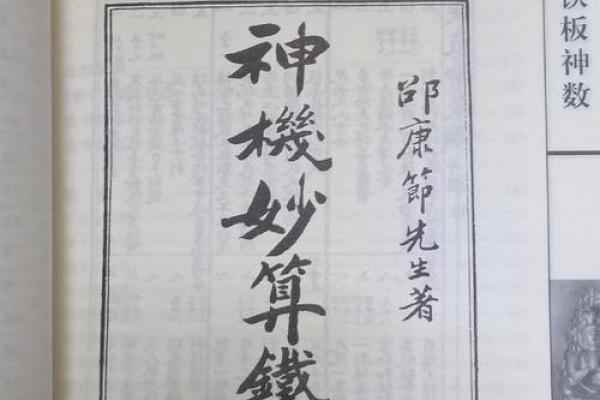 铁板神数
邵康節先生著
神機妙算鐵